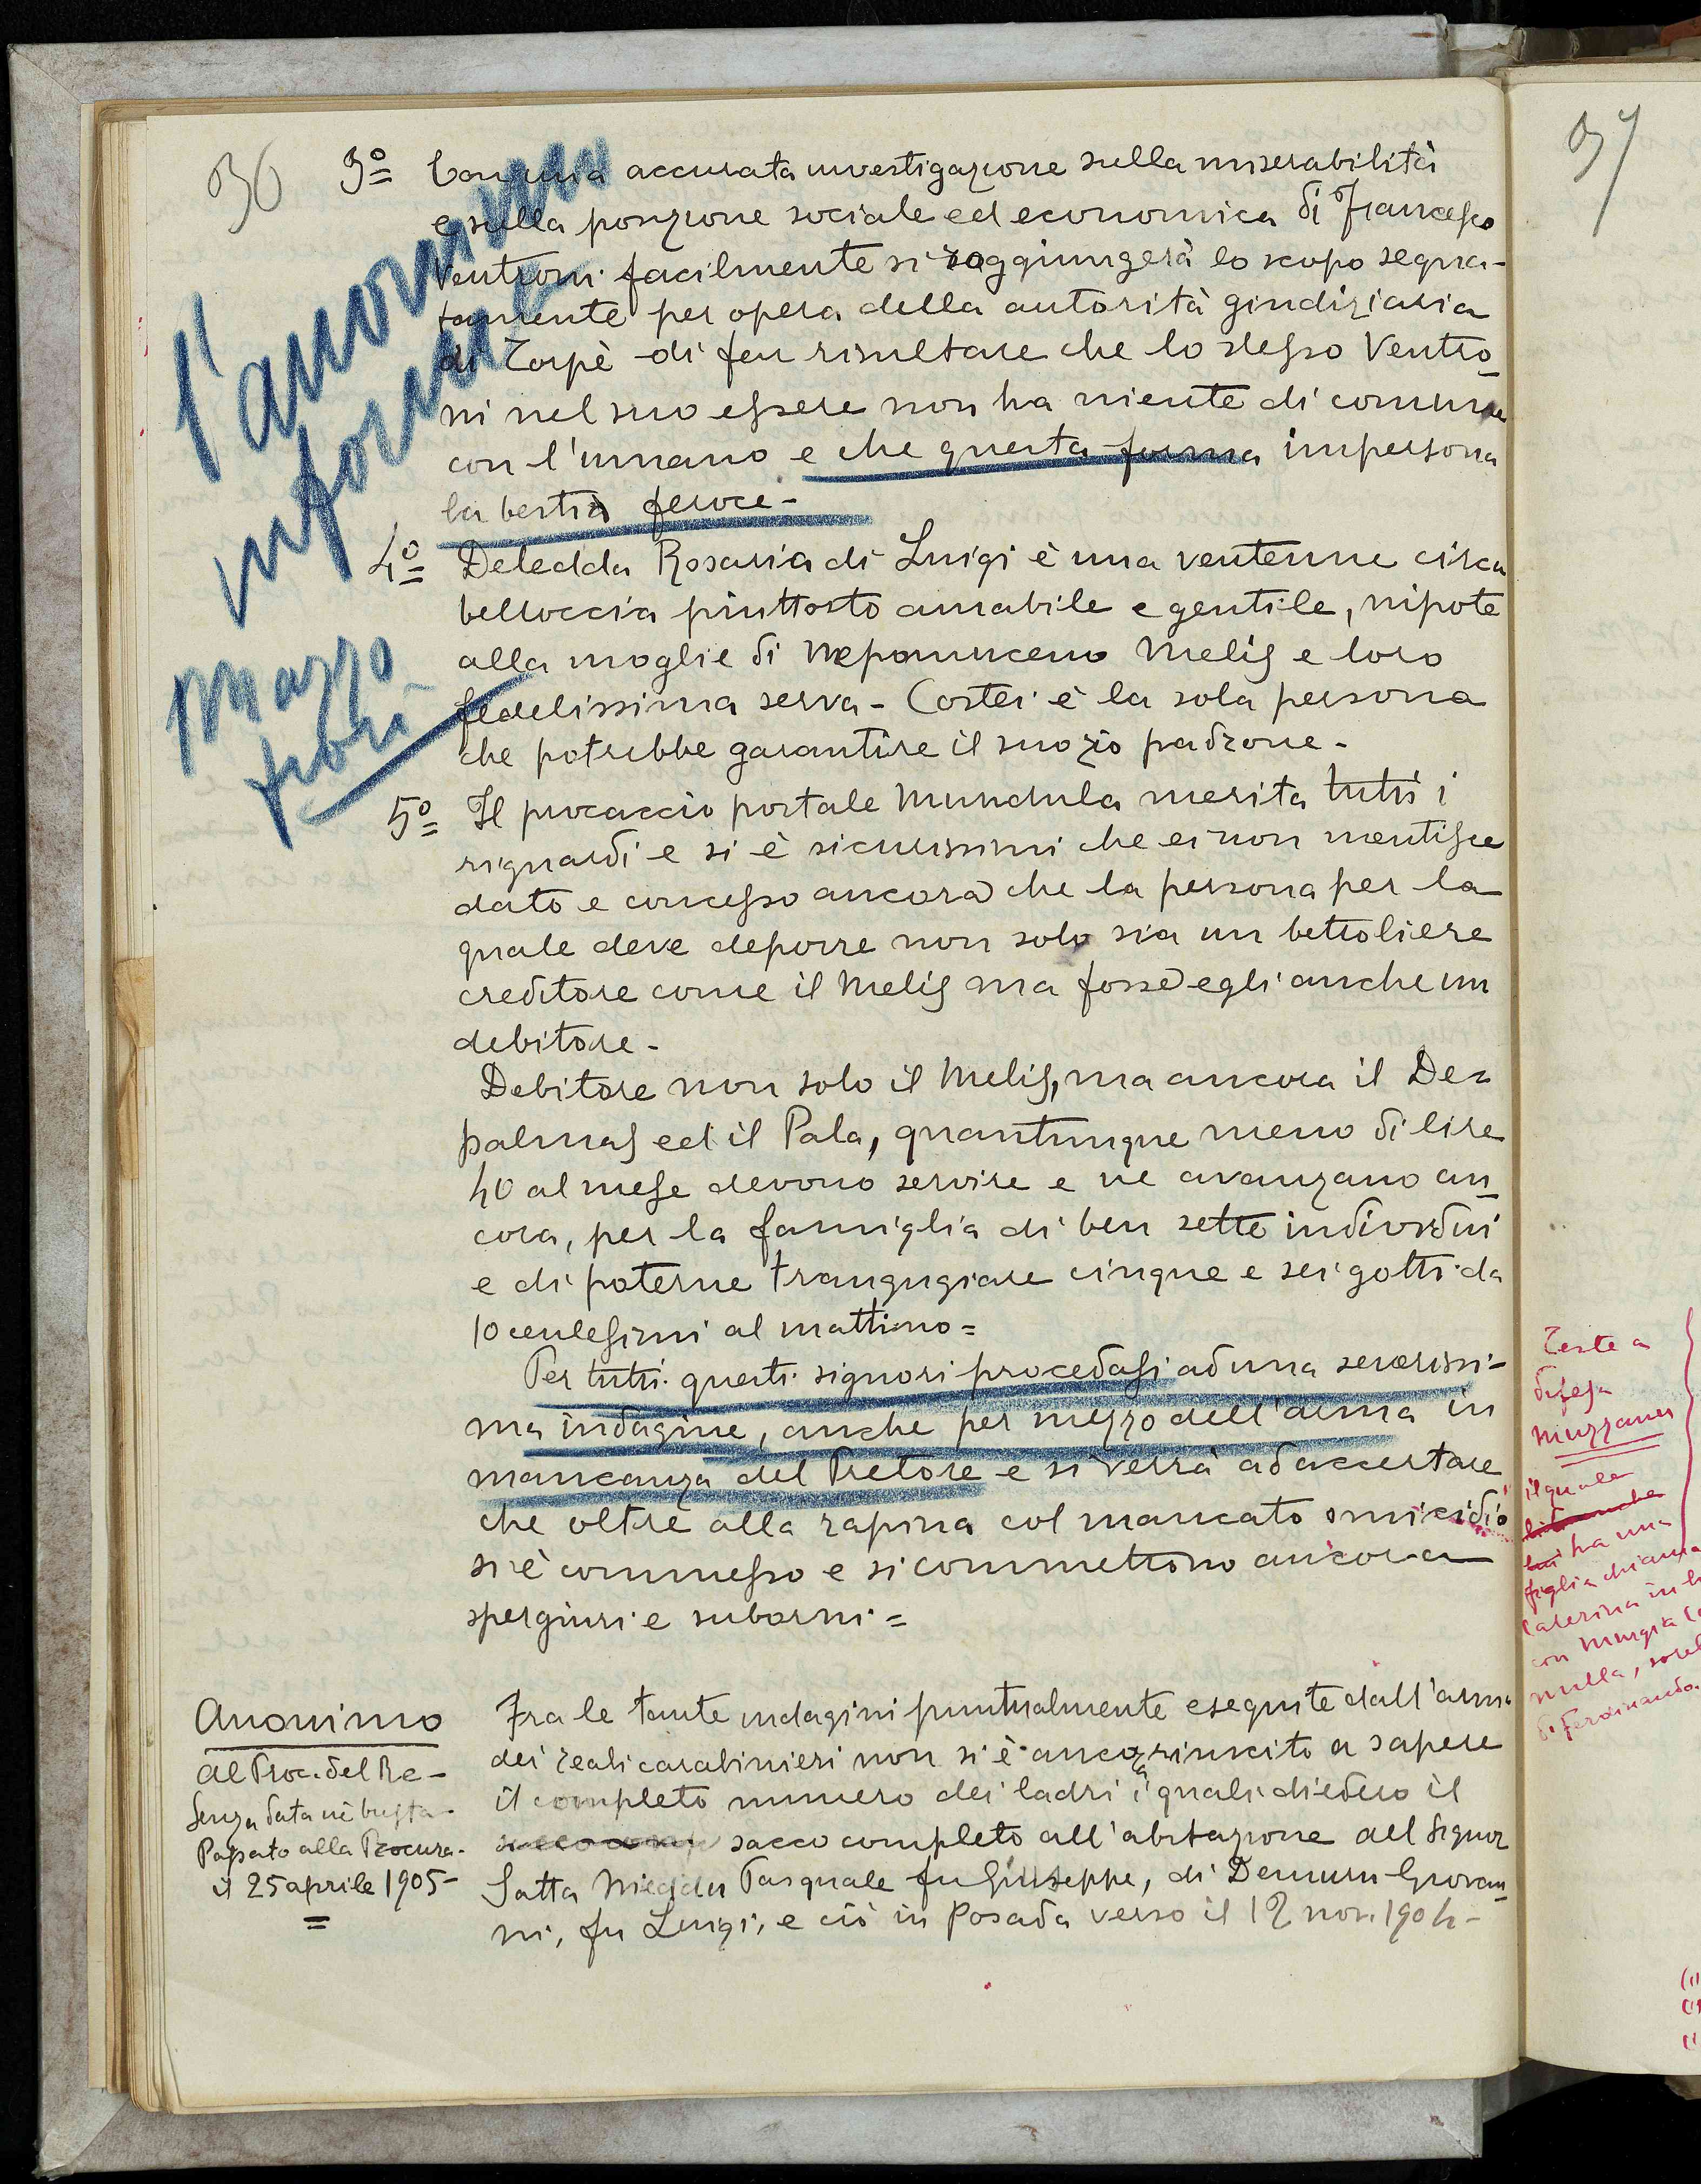 36
3º Con una accurata investigazione sulla miserabilità
e sulla posizione sociale ed economica di Francesco
Ventroni facilmente si raggiungerà lo scopo segna-
tamente per opera della autorità giudiziaria
di Torpè di far risultare che lo stesso Ventro-
ni nel suo essere non ha niente di comune
con l'umano e che questa forma impersona
la bestia feroce -
4º Deledda Rosaria di Luigi è una ventenne circa
belloccia piuttosto amabile e gentile, nipote
alla moglie di Nepomuceno Melis e loro
fedelissima serva - Costei è la sola persona
che potrebbe garantire il suo zio padrone -
5º Il procaccio portale Mundula merita tutti i
riguardi e si è sicurissimi che ei non mentisce
dato e concesso ancora che la persona per la
quale deve deporre non solo sia un bettoliere
creditore come il Melis ma fosse egli anche un
debitore -
Debitore non solo il Melis, ma ancora il De-
palmas ed il Pala, quantunque meno di lire
40 al mese devono servire e ne avanzano an-
cora, per la famiglia di ben sette individui
e di poterne trangugiare cinque e sei gotti da
10 centesimi al mattino =
Per tutti questi signori procedasi ad una severissi-
ma indagine, anche per mezzo dell'arma in
mancanza del Pretore e si verrà ad accertare
che oltre alla rapina col mancato omicidio
si è commesso e si commettono ancora
spergiuri e suborni =
l'anonimo
informa
Mazzo
fiori
Anonimo
Al Proc. del Re -
Senza data nè busta -
Passato alla Procura -
il 25 aprile 1905 -
=
Fra le tante indagini puntualmente eseguite dall'arma
dei reali carabinieri non si è ancora riuscito a sapere
il completo numero dei ladri i quali diedero il
sacco completo all'abitazione del Signor
Satta Nieddu Pasquale fu Giuseppe, di Demuru Giovan-
ni, fu Luigi, e ciò in Posada verso il 12 nov. 1904 -
37
Teste a
difesa
Muzzanu
il quale
ha una
figlia chiama
Caterina in
con Murgia
nulla, sorel
di Ferdinando